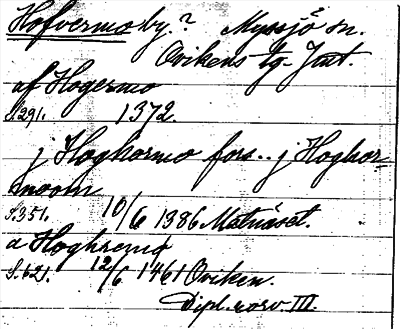 Hofvermo by.? Myssjö sn.
Ovikens tg. Jmt.
af Hogermo
S.291. 1372.
j Hoghormo fors.. j Hoghor-
moom
S.351. 10/6 1386 Matnäset.
a Hoghremo
S.621. 12/6 1461 Oviken.
Dipl. norv. III.